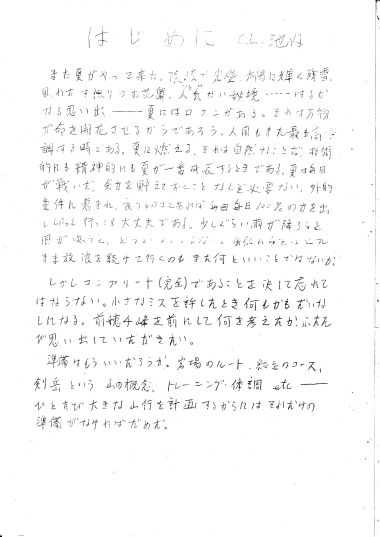 はじめに CL. 池
また夏がやって来た。 岩壁、太陽に輝く残雪、
見わたす限りのお花畑、人気ない秘境……はるか
なる思い出 ―― 夏にはロマンがある。それは万物
が命を開花させるからであろう。人間もまた最も高
調する時である。夏に燃える、それは自然なことだ。技術
的にも精神的にも夏が一番成長するときである。夏は毎日
が戦いだ。余力を貯えておくことなんど必要ない。外的
条件に恵まれ、食うものさえあれば毎日毎日100%の力を出
しきって行っても大丈夫である。少しぐらい雨が降ろうと
風が吹こうと、
まま放浪を続けて行くのもまた何といいことではないか。
しかしコンプリート(完全)であることを決して忘れて
はならない。小さなミスを許したとき何もかもだいな
しになる。前穂4峰を前にして何を考えたかふたた
び思い出していただきたい。
準備はもういいだろうか。岩場のルート、縦走のコース、
剣岳という山の概念、トレーニング、体調 etc ――
ひとたび大きな山行を計画するからにはそれだけの
準備がなければだめだ。